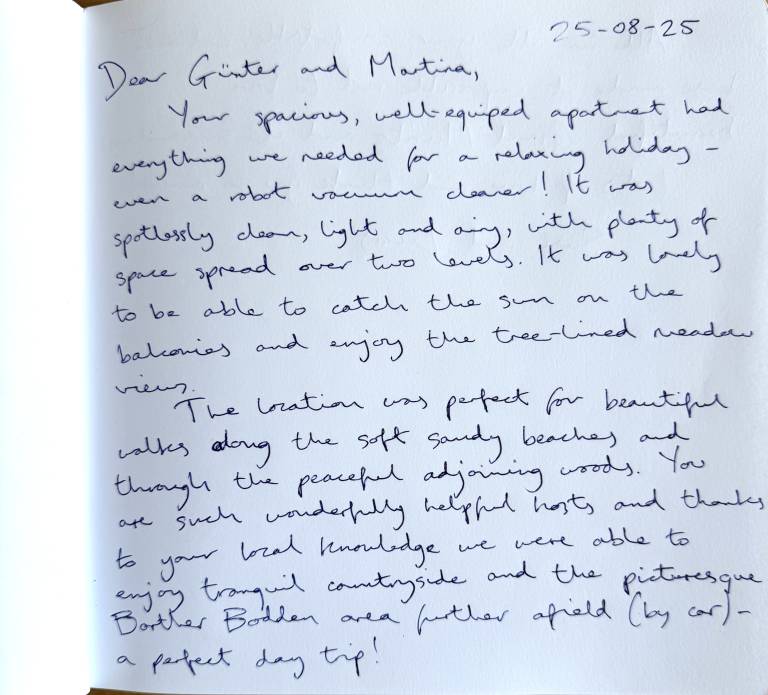 25-08-25
Dear Günter and Martina,
Your spacious, well-equiped apartment had
everything we needed for a relaxing holiday –
even a robot vacuum cleaner! It was
spotlessly clean, light and airy, with plenty of
space spread over two levels. It was lovely
to be able to catch the sun on the
balconies and enjoy the tree-lined meadow
views.
The location was perfect for beautiful
walks along the soft sandy beaches and
through the peaceful adjoining woods. You
are such wonderfully helpful hosts and thanks
to your local knowledge we were able to
enjoy tranquil countryside and the picturesque
Barther Bodden area further afield (by car) –
a perfect day trip!